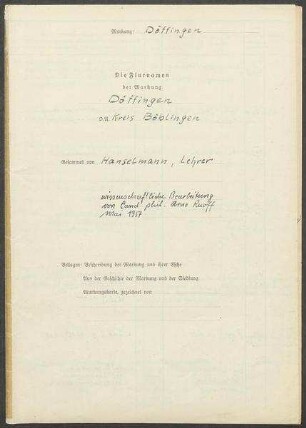 Markung: Döffingen
Die Flurnamen
der Markung
Döffingen
O.A. Kreis Böblingen
Gesammelt von: Hanselmann, Lehrer
wissenschaftliche Bearbeitung
von Cand. phil. Arno Ruoff
Mai 1957
Beilagen: Beschreibung der Markung und ihrer Böden
Aus der Geschichte der Markung und der Siedlung
Markungskarte, gezeichnet von